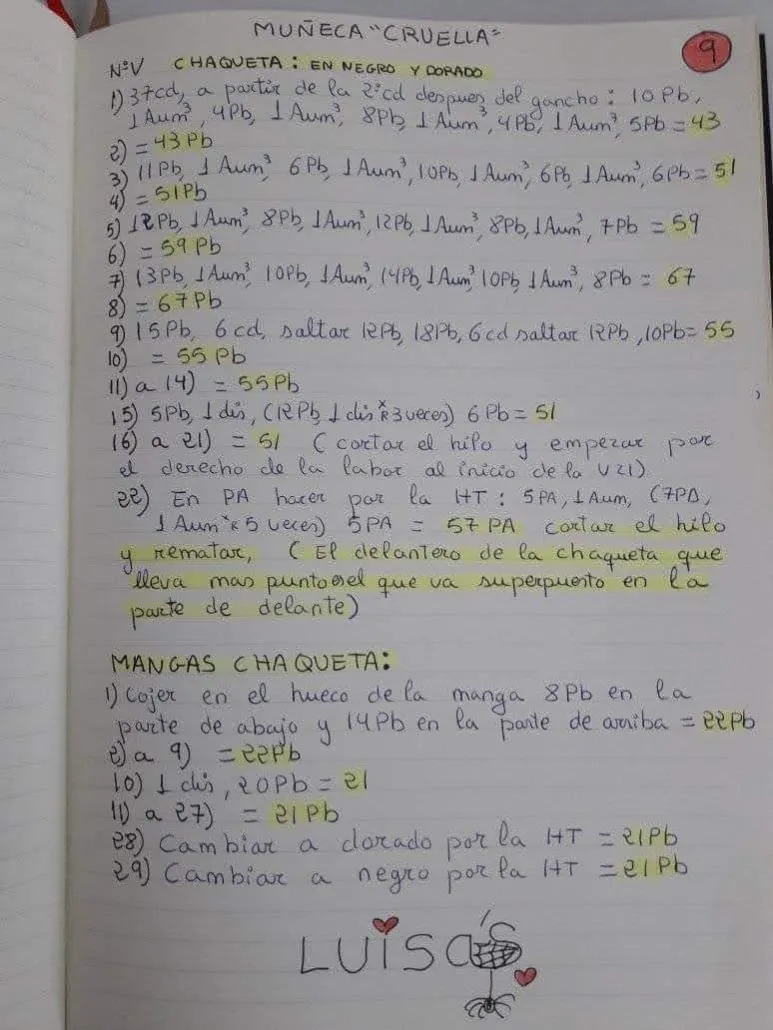 MUÑECA "CRUELLA"
9
NºV CHAQUETA: EN NEGRO Y DORADO
1) 37cd, a partir de la 2ºcd despues del gancho: 10 Pb,
1 Aum³, 4Pb, 1 Aum³, 8Pb, 1 Aum³, 4Pb, 1 Aum³, 5Pb = 43
2) = 43 Pb
3) 11Pb, 1 Aum³, 6Pb, 1 Aum³, 10Pb, 1 Aum³, 6Pb, 1 Aum³, 6Pb = 51
4) = 51Pb
5) 12Pb, 1 Aum³, 8Pb, 1 Aum³, 12Pb, 1 Aum³, 8Pb, 1 Aum³, 7Pb = 59
6) = 59 Pb
7) 13Pb, 1 Aum³, 10Pb, 1 Aum³, 14Pb, 1 Aum³, 10Pb, 1 Aum³, 8Pb = 67
8) = 67Pb
9) 15Pb, 6cd, saltar 12Pb, 18Pb, 6cd saltar 12Pb, 10Pb = 55
10) = 55 Pb
11) a 14) = 55Pb
15) 5Pb, 1 dis, (12Pb, 1 dis x R 3 veces) 6Pb = 51
16) a 21) = 51 (cortar el hilo y empezar por
el derecho de la labor al inicio de la V21)
22) En PA hacer por la HT: 5PA, 1 Aum, (7PA,
1 Aum x R 5 veces) 5PA = 57 PA cortar el hilo
y rematar, (El delantero de la chaqueta que
lleva mas punto es el que va superpuesto en la
parte de delante)
MANGAS CHAQUETA:
1) Cojer en el hueco de la manga 8Pb en la
parte de abajo y 14Pb en la parte de arriba = 22Pb
2) a 9) = 22Pb
10) 1 dis, 20Pb = 21
11) a 27) = 21Pb
28) Cambiar a dorado por la HT = 21Pb
29) Cambiar a negro por la HT = 21Pb
LUISA'S